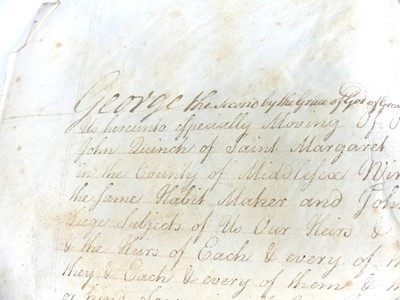 George the Second by the Grace of God of Grea
Us hereunto Especially Moving Of O
John Quinch of Saint Margaret
in the County of Middlesex Win
the same Habit Maker and John
Liege Subjects of Us Our Heirs &
& the Heirs of Each & every of th
they & Each & every of them & th